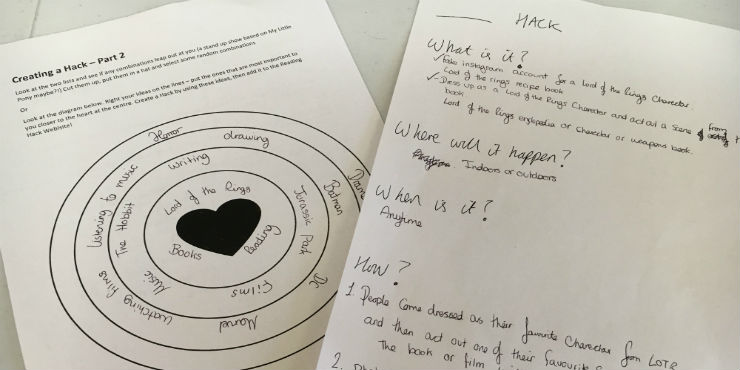 Creating a Hack – Part 2
Look at the two lists and see if any combinations leap out at you (a stand up show based on My Little
Pony maybe?!) Cut them up, put them in a hat and select some random combinations
Or
Look at the diagram below. Right your ideas on the lines – put the ones that are most important to
you closer to the heart at the centre. Create a Hack by using these ideas, then add it to the Reading
Hack Website!
Horror
drawing
Drama
writing
Batman
Listening to music
The Hobbit
Lord of the Rings
Jurassic Park
Books
Reading
DC
Music
Films
watching films
Marvel
HACK
What is it?
✓Fake instagram account for a Lord of the Rings Character.
Lord of the rings recipe book
✓Dress up as a Lord of the Rings Character and act out a scene from
book
Lord of the Rings or Character or weapons book.
Where will it happen?
Indoors or outdoors
When is it?
Anytime
How?
1. People Come dressed as their favourite Character from LOTR
and then act out one of their favourite
The book or film
2.